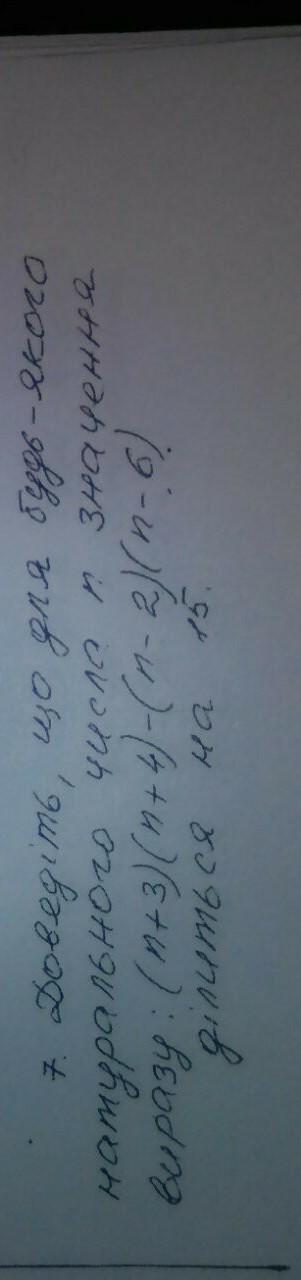 7. Доведіть, що для будь-якого
натурального числа n значення
виразу: (n+3)(n+4)-(n-2)(n-6)
ділиться на 15.